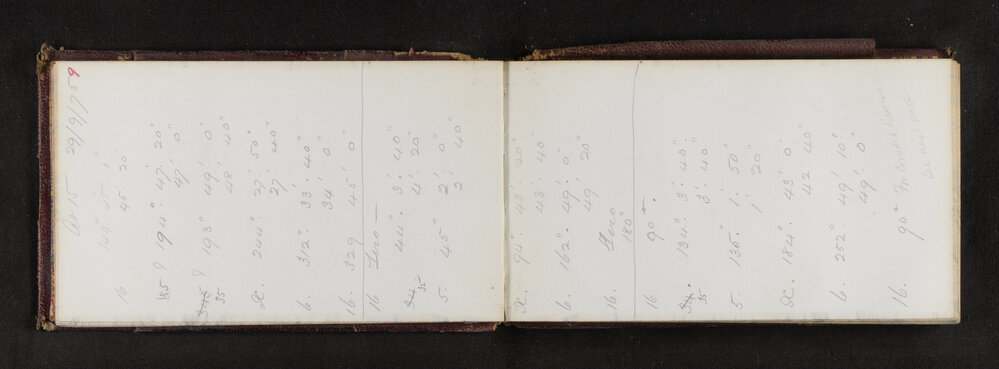 At 15 29/9/75 9
16 149° 5' 0"
45' 20"
15? 194° 47' 20"
47' 0"
35 193° 49' 0"
48' 40"
x. 244° 27' 50"
27' 40"
6. 312° 33' 40"
34' 0
16. 329 45' 0"
16 Zero —
35 44° 3' 40"
4' 20"
5. 45° 2' 0"
2' 40"
x. 94° 43' 20"
43 40"
6. 162° 49' 0"
49' 20"
16. Zero
180°
16 90°.
35 134° 3' 40"
3' 40"
5. 135° 1' 50"
1' 20"
x. 184° 43' 0"
42 40
6. 252° 49' 10"
49' 0"
16. 90°